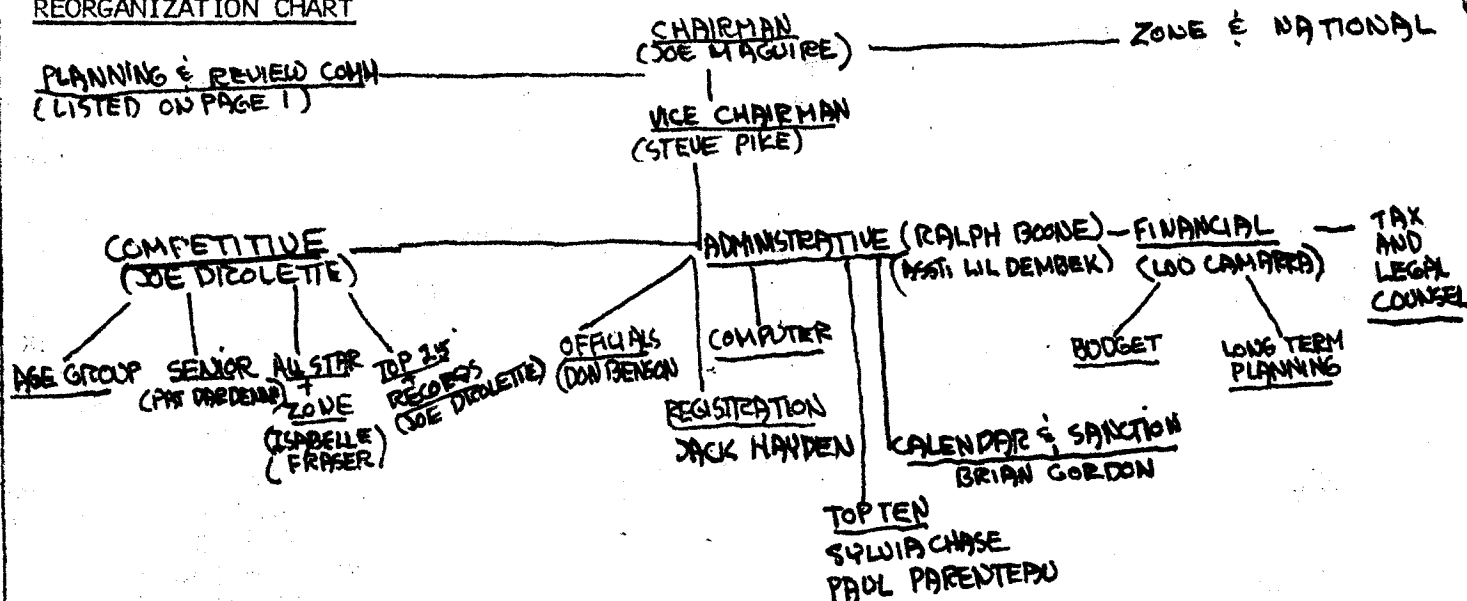 REORGANIZATION CHART
CHAIRMAN
(JOE MAGUIRE)
ZONE & NATIONAL
PLANNING & REVIEW COMM
(LISTED ON PAGE 1)
VICE CHAIRMAN
(STEVE PIKE)
COMPETITIVE
(JOE DICOLETTE)
ADMINISTRATIVE (RALPH BOONE)
(ASST: LIL DEMBEK)
FINANCIAL
(LOU CAMARRA)
TAX
AND
LEGAL
COUNSEL
AGE GROUP
SENIOR
(PAT DARDENNE)
ALL STAR
+
ZONE
(ISABELLE
(FRASER)
TOP 25
+
RECORDS
(JOE DICOLETTE)
OFFICIALS
(DON BENSON
COMPUTER
BUDGET
LONG TERM
PLANNING
REGISTRATION
JACK HAYDEN
CALENDAR & SANCTION
BRIAN GORDON
TOP TEN
SYLVIA CHASE
PAUL PARENTEAU